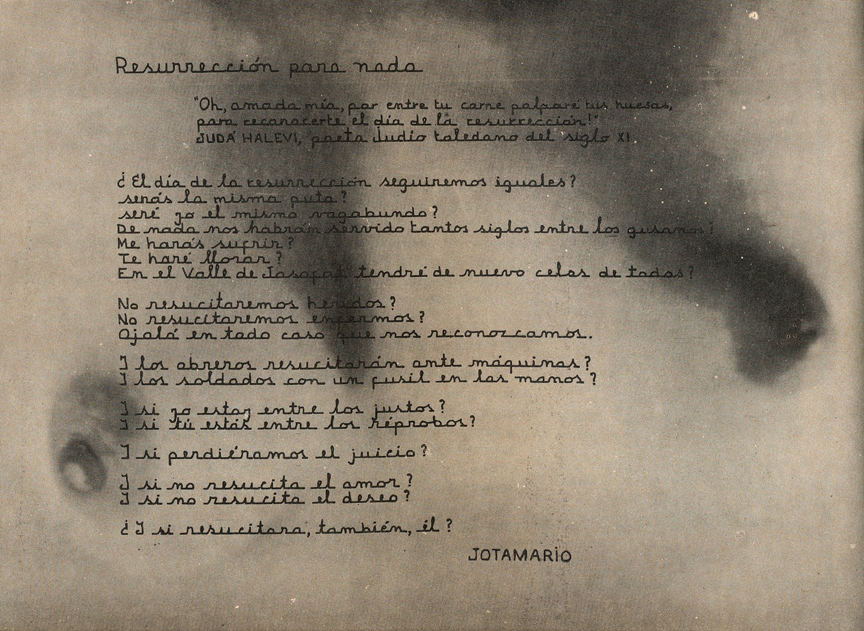 Resurrección para nada
"Oh, amada mía, por entre tu carne palparé tus huesos,
para reconocerte el día de la resurrección!"
JUDÁ HALEVI, poeta Judío toledano del siglo XI
¿El día de la resurrección seguiremos iguales?
serás la misma puta?
seré yo el mismo vagabundo?
De nada nos habrán servido tantos siglos entre los gusanos?
Me harás sufrir?
Te haré llorar?
En el Valle de Josafat tendré de nuevo celos de todos?
No resucitaremos heridos?
No resucitaremos enfermos?
Ojalá en todo caso que nos reconozcamos.
I los obreros resucitarán ante máquinas?
I los soldados con un fusil en las manos?
I si yo estoy entre los justos?
I si tú estás entre los réprobos?
I si perdiéramos el juicio?
I si no resucita el amor?
I si no resucita el deseo?
¿I si resucitara, también, él?
JOTAMARIO